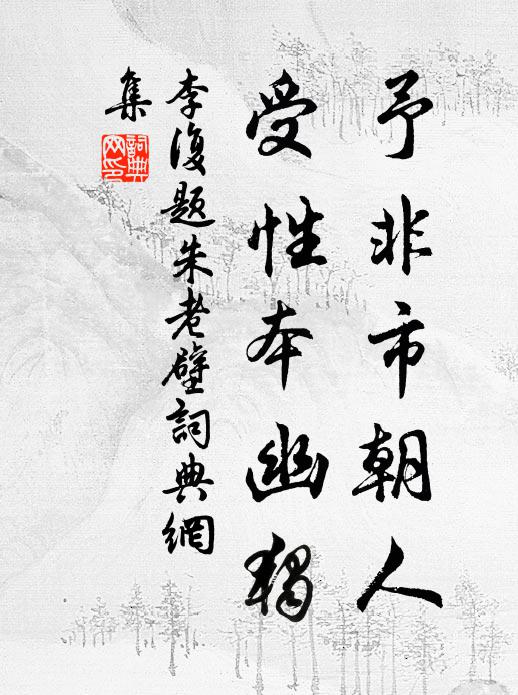 予非市朝人
受性本幽獨
李復題朱老壁詞典網
集
詞典
网印